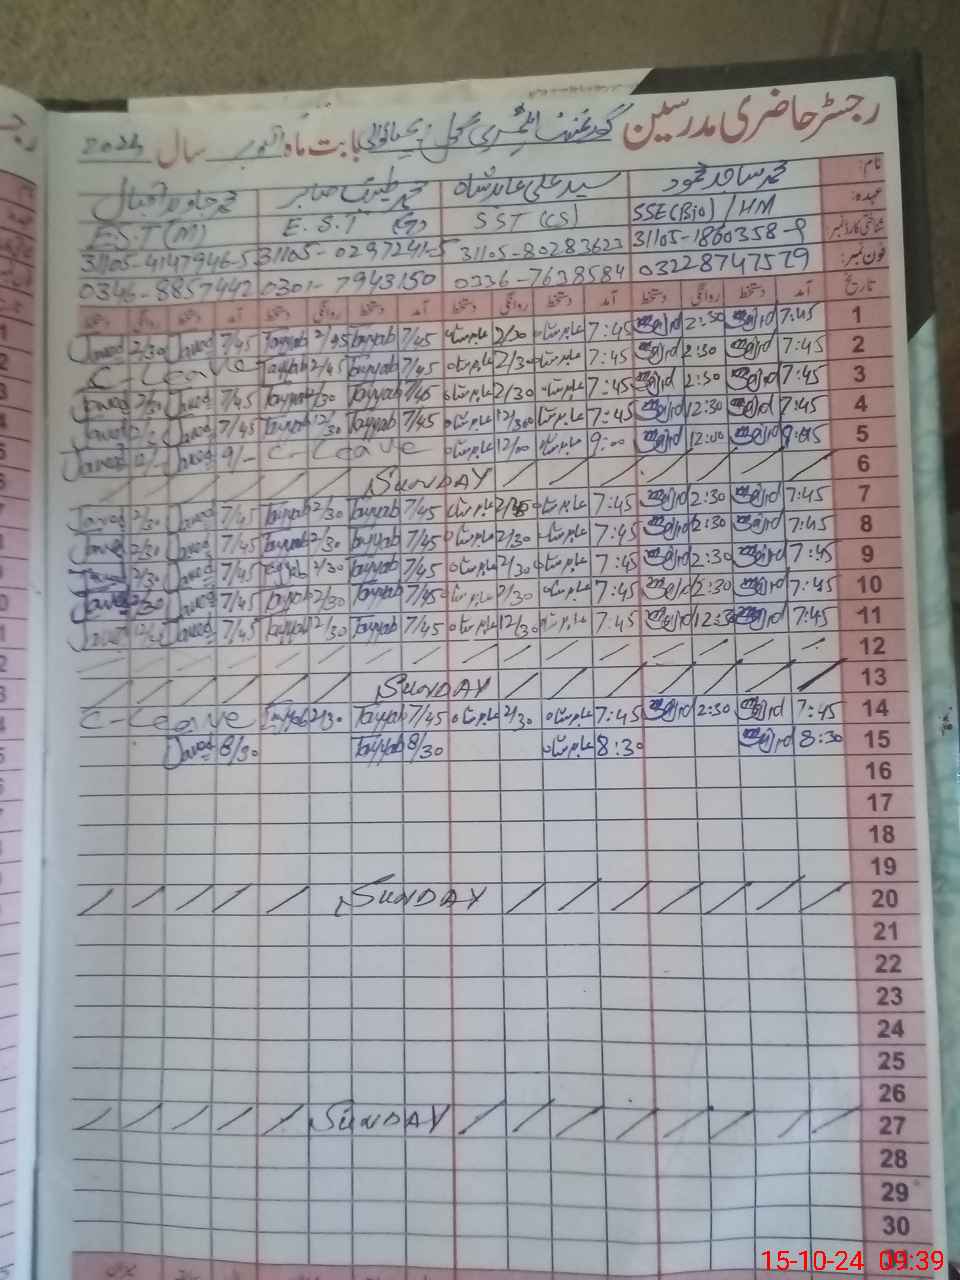 رجسٹر حاضری مدرسین گورنمنٹ ایلیمنٹری سکول بابت ماہ اکتوبر سال 2024
نام: محمد ساجد محمود سید علی عابد شاہ محمد طیب صابر محمد جاوید اقبال
عہدہ: SSE(Bio)/HM SST (CS) E.S.T E.S.T (M)
شناختی کارڈ نمبر: 31105-1860358-9 31105-80283623 31105-0297241-5 31105-4147946-5
فون نمبر: 03228747579 0336-7638584 0301-7943150 0346-8857442
تاریخ آمد دستخط روانگی دستخط آمد دستخط روانگی دستخط آمد دستخط روانگی دستخط آمد دستخط روانگی دستخط
1 7:45 Sajid 2:30 Sajid 7:45 عابد شاہ 2/30 عابد شاہ 7/45 Tayyab 2/45 Tayyab 7/45 Javed 2/30 Javed
2 7:45 Sajid 2:30 Sajid 7:45 عابد شاہ 2/30 عابد شاہ 7/45 Tayyab 2/45 Tayyab C-Leave
3 7:45 Sajid 2:30 Sajid 7:45 عابد شاہ 2/30 عابد شاہ 7/45 Tayyab Tayyab 7/45 Javed 2/30 Javed
4 7:45 Sajid 12:30 Sajid 7:45 عابد شاہ عابد شاہ 7/45 Tayyab 12/30 Tayyab 7/45 Javed Javed
5 Sajid 12:00 Sajid 9:00 عابد شاہ 12/00 عابد شاہ C-Leave 9/- Javed 12/- Javed
6 SUNDAY
7 7:45 Sajid 2:30 Sajid 7:45 عابد شاہ عابد شاہ 7/45 Tayyab 2/30 Tayyab 7/45 Javed 2/30 Javed
8 7:45 Sajid 2:30 Sajid 7:45 عابد شاہ 2/30 عابد شاہ 7/45 Tayyab 2/30 Tayyab 7/45 Javed 2/30 Javed
9 7:45 Sajid 2:30 Sajid 7:45 عابد شاہ 2/30 عابد شاہ 7/45 Tayyab 2/30 Tayyab 7/45 Javed 2/30 Javed
10 7:45 Sajid 2:30 Sajid 7:45 عابد شاہ 2/30 عابد شاہ 7/45 Tayyab 2/30 Tayyab 7/45 Javed 2/30 Javed
11 7:45 Sajid 12:30 Sajid 7:45 عابد شاہ 12/30 عابد شاہ 7/45 Tayyab 12/30 Tayyab 7/45 Javed Javed
12
13 SUNDAY
14 7:45 Sajid 2:30 Sajid 7:45 عابد شاہ 2/30 عابد شاہ 7/45 Tayyab 2/30 Tayyab C-Leave
15 8:30 Sajid 8:30 عابد شاہ 8/30 Tayyab 8/30 Javed
16
17
18
19
20 SUNDAY
21
22
23
24
25
26
27 SUNDAY
28
29
30
15-10-24 09:39